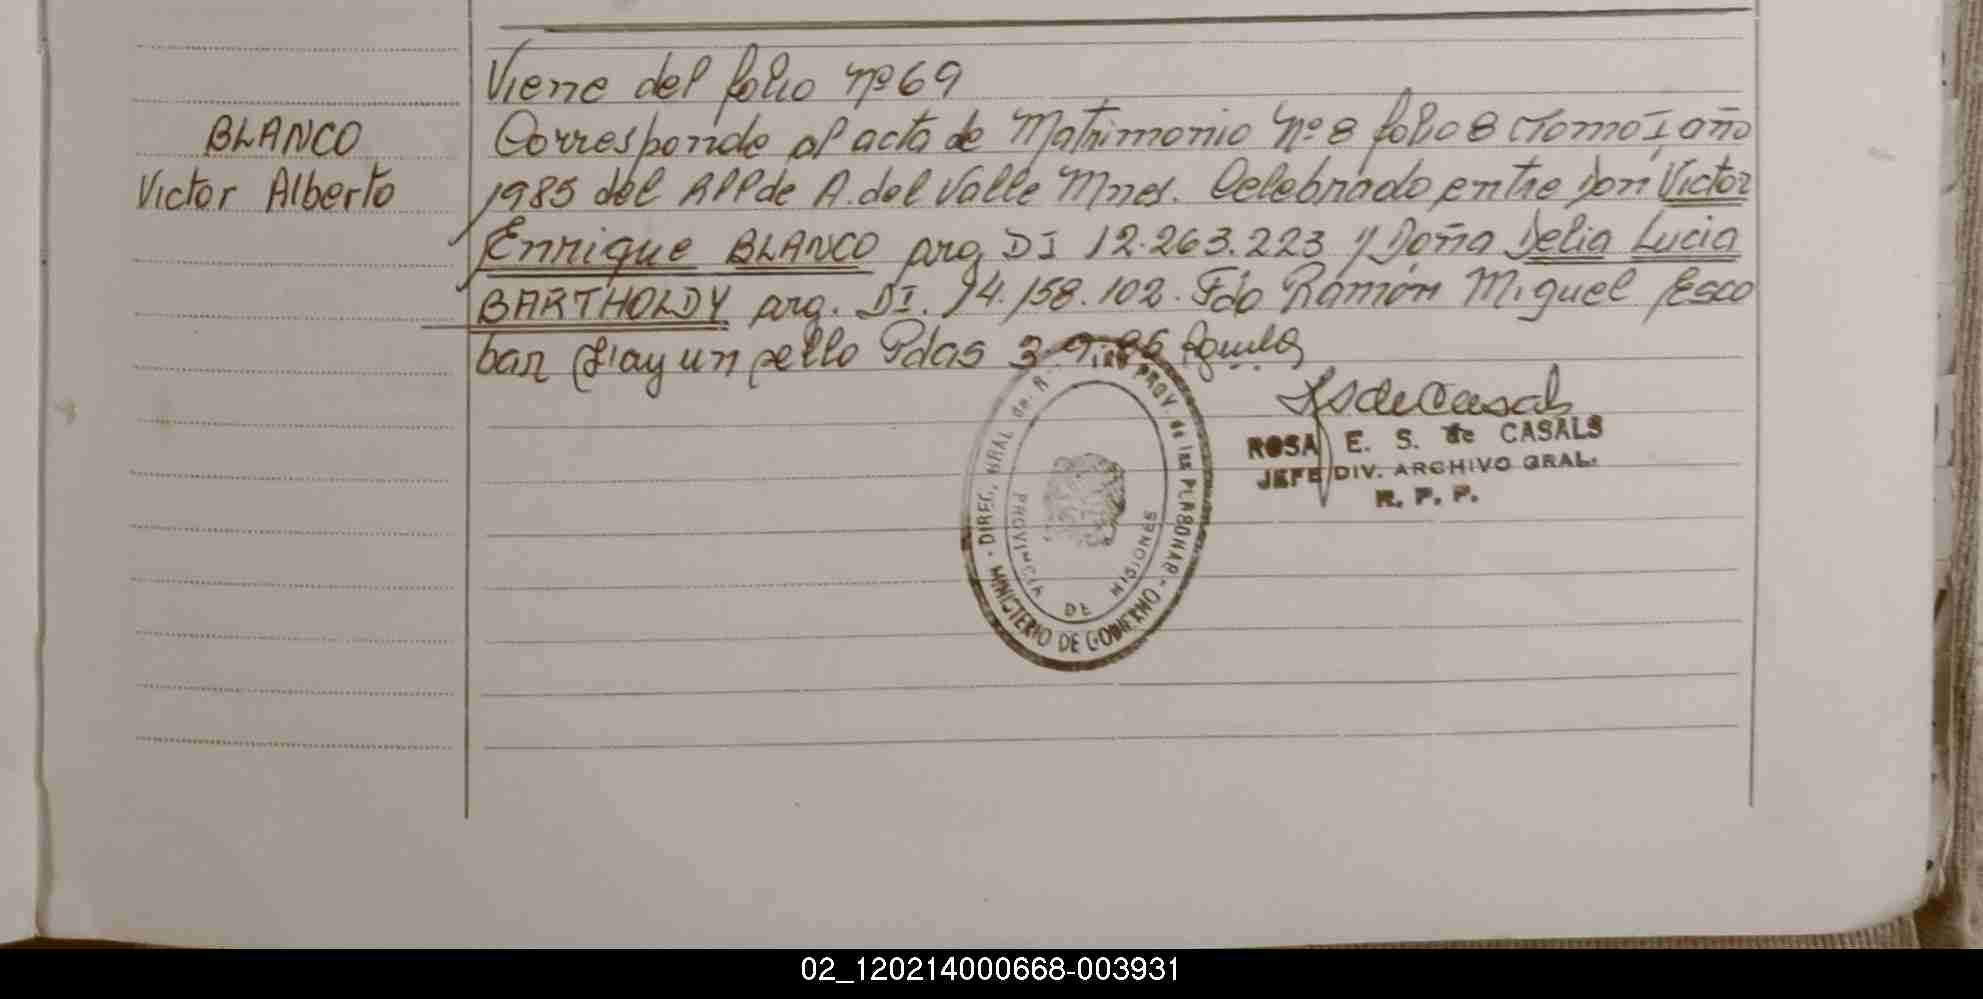 Viene del folio nº 69
BLANCO
Victor Alberto
Corresponde al acta de Matrimonio Nº 8 folio 8 Tomo I, año
1985 del RPP de A. del Valle Mnes. Celebrado entre Don Victor
Enrique BLANCO arg DI 12.263.223 y Doña Delia Lucia
BARTHOLDY arg. DI. 14.158.102. Fdo Ramón Miguel Esco
bar Hay un sello Pdas 3-9-86
ROSA E. S. de CASALS
JEFE DIV. ARCHIVO GRAL.
R. P. P.
PROV. de las PERSONAS
MINISTERIO DE GOBIERNO
PROVINCIA DE MISIONES
02_120214000668-003931